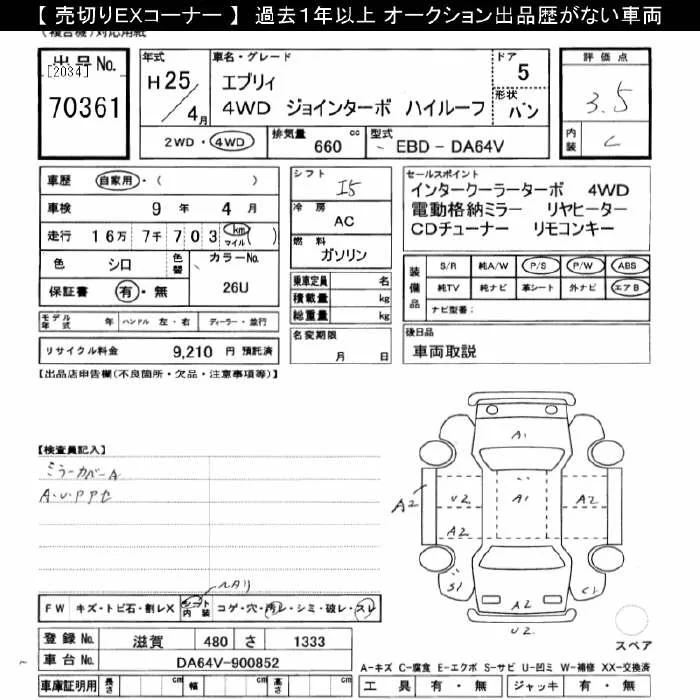 【 売切りEXコーナー 】 過去1年以上 オークション出品歴がない車両
(複合機)対応用紙
出品No.
[2034]
70361
年式
H25/4月
車名・グレード
エブリィ
4WD ジョインターボ ハイルーフ
ドア
5
形状
バン
2WD・4WD
排気量 660 cc
型式 EBD-DA64V
評価点
3.5
内装 C
車歴 自家用・( )
車検 9年 4月
走行 16万 7千 703 km マイル ( )
色 シロ 色替 カラーNo. 26U
保証書 有・無
モデル年式 年 ハンドル 左・右 ディーラー・並行
リサイクル料金 9,210 円 預託済
シフト I5
冷房 AC
燃料 ガソリン
乗車定員 名
積載量 kg
総重量 kg
名変期限
月 日
セールスポイント
インタークーラーターボ 4WD
電動格納ミラー リヤヒーター
CDチューナー リモコンキー
装備品
S/R 純A/W P/S P/W ABS
純TV 純ナビ 革シート 外ナビ エアB
ナビ型番:
後日品
車両取説
【出品店申告欄(不良箇所・欠品・注意事項等)】
【検査員記入】
ミラーカバーA
A・U・PPセ
A1
A2 U2 A1 A2
A2
S1 C1
A2
U2
スペア
FW キズ・トビ石・割レX シート内装 コゲ・穴・汚レ・シミ・破レ・スレ
登録No. 滋賀 480 さ 1333
車台No. DA64V-900852
車庫証明用 長さ cm 幅 cm 高さ cm
A-キズ C-腐食 E-エクボ S-サビ U-凹ミ W-補修 XX-交換済
工具 有・無 ジャッキ 有・無